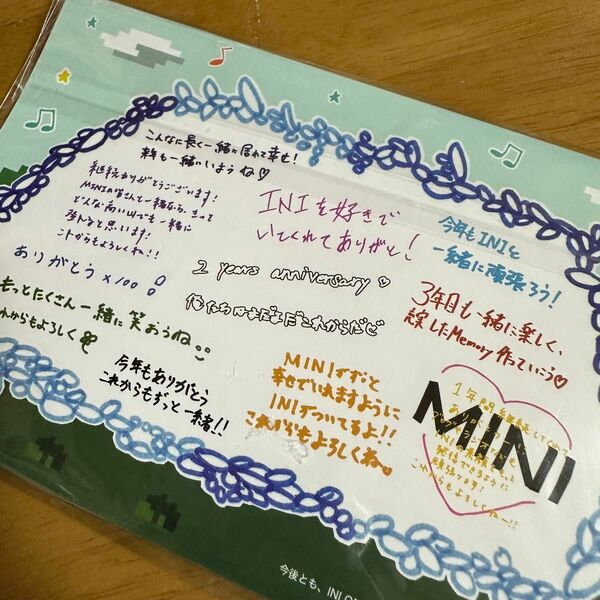 こんなに長く一緒に居れて幸せ!
来年も一緒いようね♡
継続ありがとうございます!
MINIの皆さんと一緒なら、きっと
どんな高い山でも一緒に
登れると思います!
これからもよろしくね!!
ありがとう×100
もっとたくさん一緒に笑おうね
これからもよろしく
今年もありがとう
これからもずっと一緒!!
INIを好きで
いてくれてありがとう!
2 years anniversary♡
俺たちはまだまだこれからだぜ
MINIがずっと
幸せでいれますように
INIがついてるよ!!
これからもよろしくね。
今年もINIと
一緒に頑張ろう!
3年目も一緒に楽しく、
充実したMemory作っていこう♡
MINI
1年間継続してくれて
ありがとう
これからもよろしくね〜!!
今後とも、INI